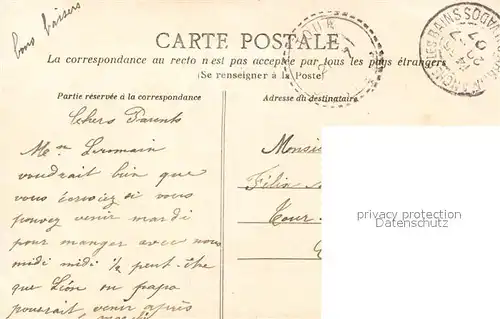 bons baisers
CARTE POSTALE
La correspondance au recto n'est pas acceptée par tous les pays étrangers
(Se renseigner à la Poste)
Partie réservée à la correspondance
Adresse du destinataire
Chers Parents
Mme Lermain
voudrait bien que
vous écriviez si vous
pouvez venir mardi
pour manger avec nous
midi midi ½ peut-être
que Léon ou papa
pourrait venir après
Monsieu
BAINS
privacy protection
Datenschutz